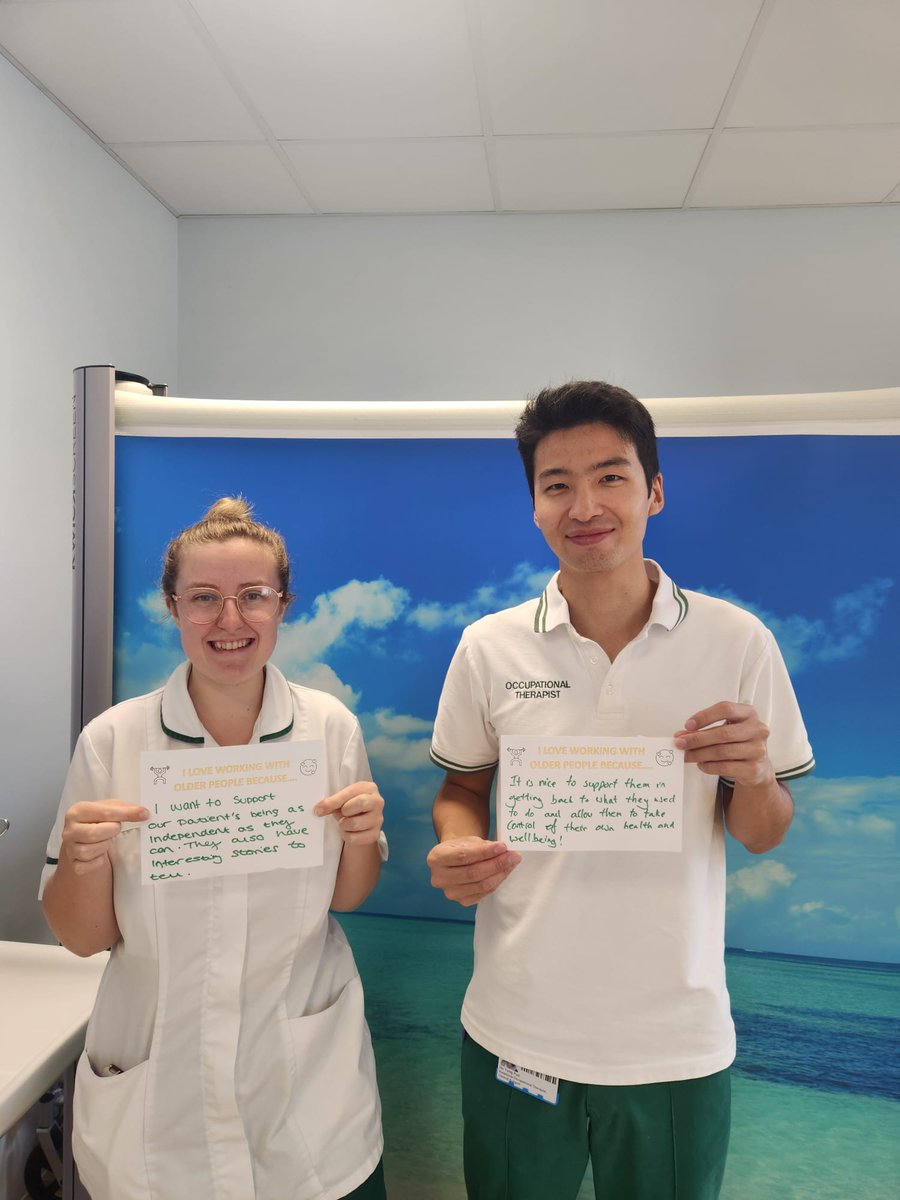 OCCUPATIONAL
THERAPIST
I LOVE WORKING WITH
OLDER PEOPLE BECAUSE....
I want to support
our patient's being as
independent as they
can. They also have
interesting stories to
tell.
I LOVE WORKING WITH
OLDER PEOPLE BECAUSE....
It is nice to support them in
getting back to what they used
to do and allow them to take
control of their own health and
wellbeing!